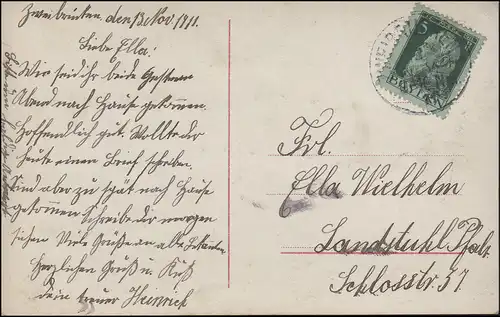 Zweibrücken, den 13 Nov 1911.
Liebe Ella!
Wie seid ihr beide Gestern
Abend nach Hause gekommen.
Hoffendlich gut. Wollte dir
heute einen Brief schreiben.
Sind aber zu spät nach Hause
gekommen Schreibe dir morgen
sicher. Viele Grüße an alle Bekannten
Herzlichen Gruß u. Kuß
dein treuer Heinrich
5
BAYERN
Frl.
Ella Wielhelm
Landstuhl. Pfalz.
Schlosstr. 37